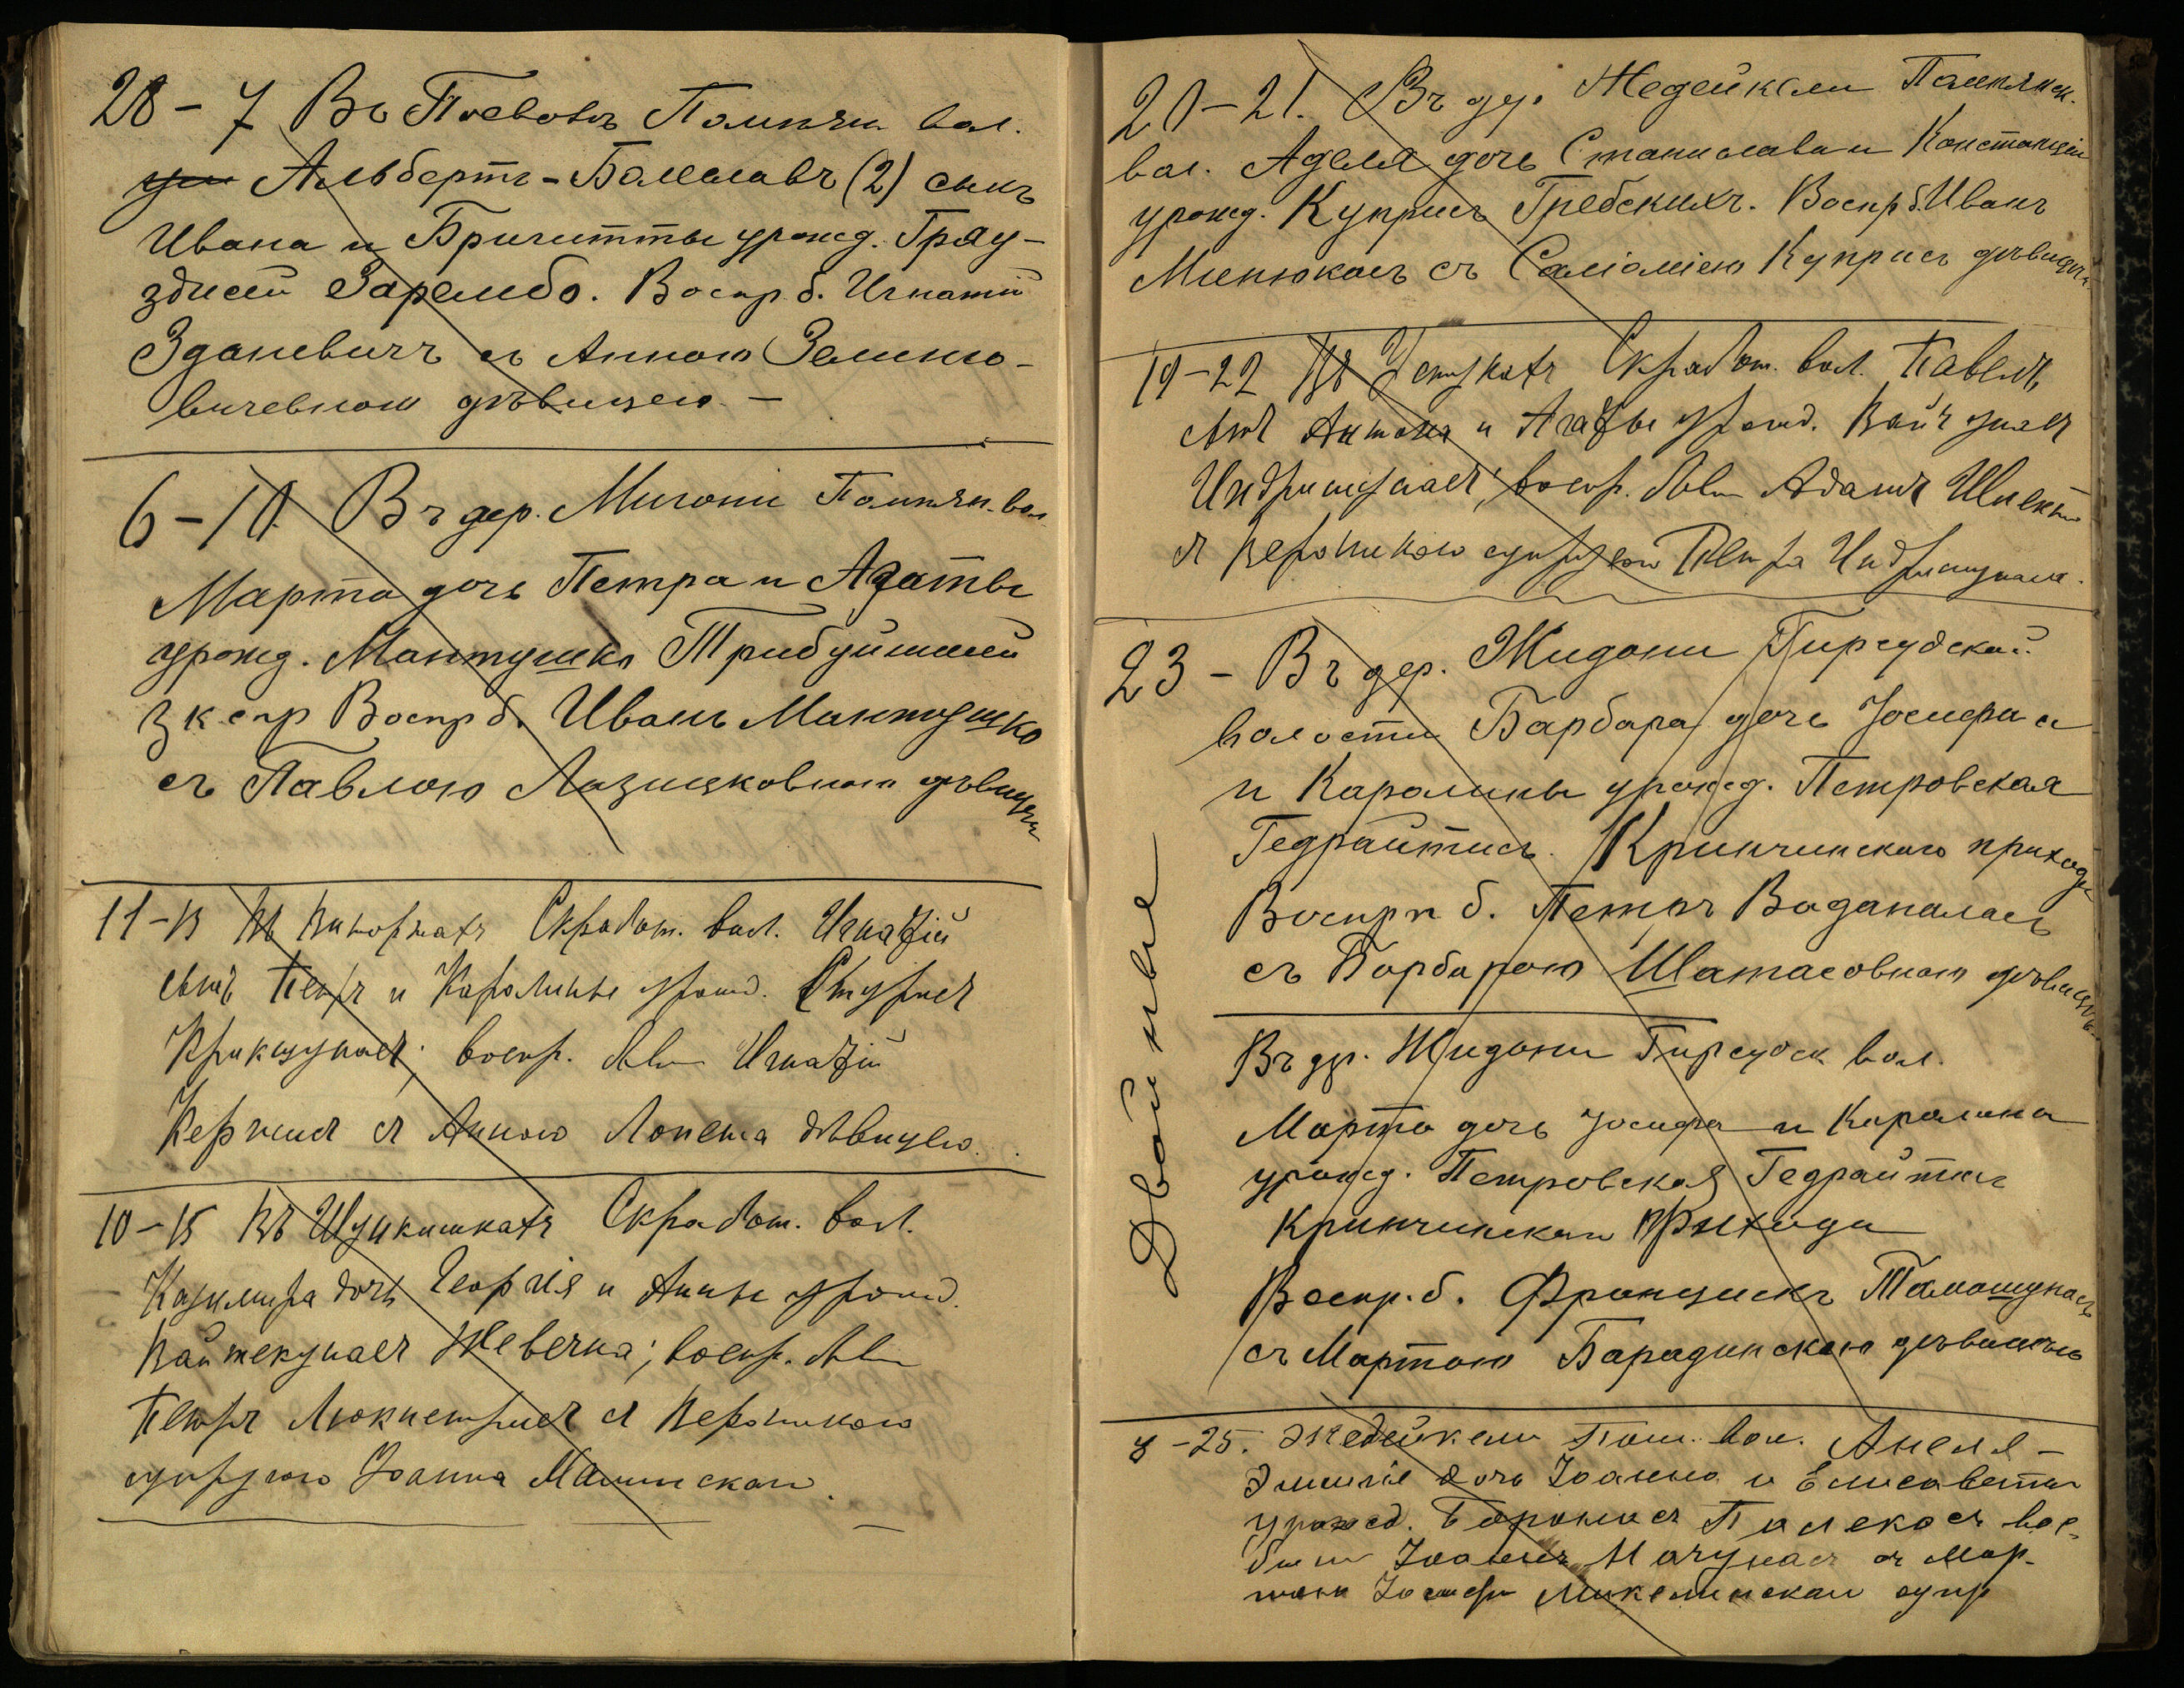 28 - 7 Въ Поевовъ Помпян вол.
Альбертъ-Болеславъ (2) сынъ
Ивана и Бригитты урожд. Грау-
здисей Зарембо. Воспр. б. Игнатій
Здоневичъ съ Анною Земкно-
вичевною дѣвицею. -
6-10. Въ дер. Мигони Помпян. вол
Марта дочь Петра и Агаты
урожд. Мантушко Трибуйшисей
Воспр б. Иванъ Мантушко
съ Павлою дѣвицею
11-13 Въ Скработ. вол. Игнатій
сынъ Петра и Каролины урожд. Стурись
Крикщунасъ; воспр. были Игнатій
съ Анною Лопета дѣвицею.
10-15 Въ Скработ. вол.
Казимира дочь Георгія и Анны урожд.
Вайтекунасъ Жевечка; воспр. были
Петръ Люкпетрисъ съ Вероникою
супругою Іоанна Машинскаго.
20-21. Въ дер. Жедейкели Помпянск.
вол. Аделя дочь Станислава и Констанціи
урожд. Куприсъ Гребскихъ. Воспр б. Иванъ
Минюкасъ съ Саліоміею Куприсъ дѣвицею.
19-22 Въ Скработ. вол. Павелъ
сынъ Антона и Агафы урожд. Вайчунасъ
Индришунасъ; воспр. были Адамъ
съ Вероникою супругою Петра Индришунаса.
23 - Въ дер. Жидони Гирсудской
волости Барбара дочь Іосифа и
и Каролины урожд. Петровская
Гедрайтисъ. Кринчинскаго прихода
Воспр п б. Петръ Водапаласъ
съ Барбарою Шатасовною дѣвицею.
Двойные
Въ др. Жидони Гирсудск вол.
Марта дочь Іосифа и Каролина
урожд. Петровская Гедрайтис
Кринчинскаго прихода
Воспр. б. Францискъ Тамошунасъ
съ Мартою Барадинскою дѣвицею
8-25. Жедейкели Пом. вол. Анеля -
Эмилія дочь Іоанна и Елисаветы
урожед. Баронасъ Палекасъ вос.
были Іоаннъ Мачунасъ съ Мар-
тою Іосифа Микелинскаго супр